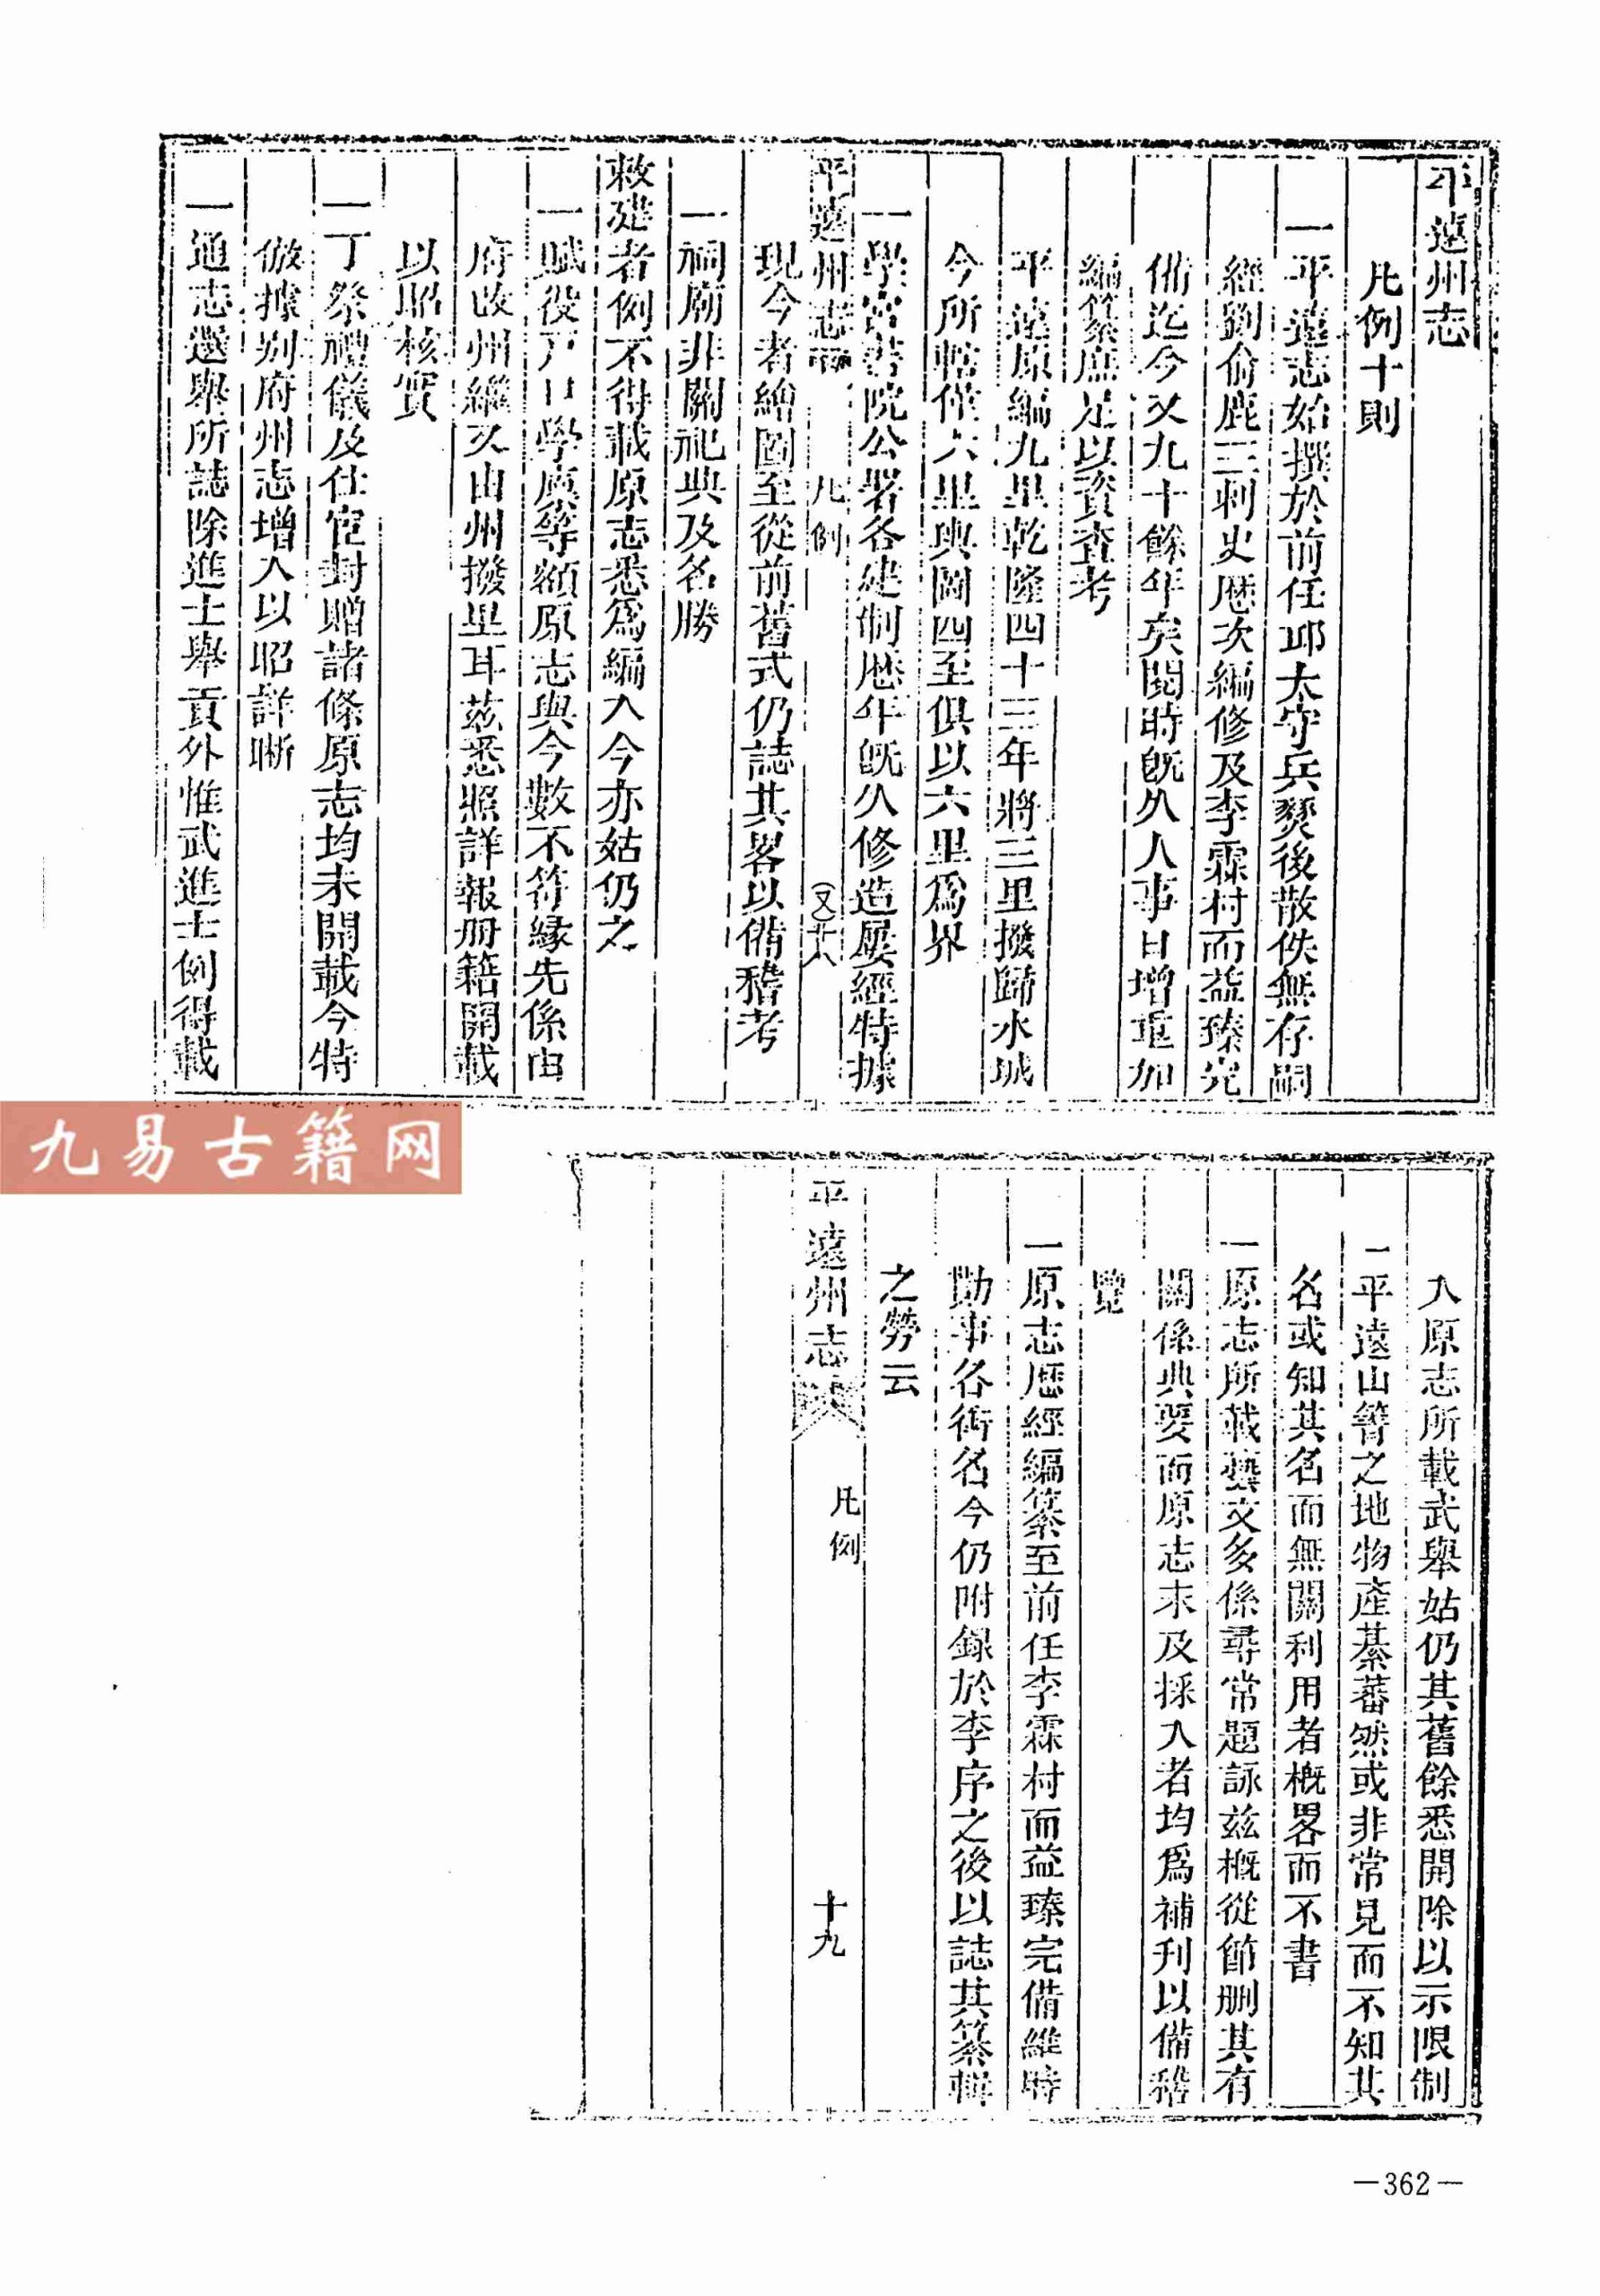 平遠州志
凡例十則
一平遠志始撰於前任邱太守兵燹後散佚無存嗣
經劉俞鹿三刺史歷次編修及李霖村而益臻完
備迄今又九十餘年矣閱時旣久人事日增重加
編纂庶足以資查考
平遠原編九里乾隆四十三年將三里撥歸水城
今所轄僅六里輿圖四至俱以六里爲界
一學宮書院公署各建制歷年旣久修造屢經特據
平遠州志 凡例 (又)廿八
現今者繪圖至從前舊式仍誌其畧以備稽考
一祠廟非關祀典及名勝
敕建者例不得載原志悉爲編入今亦姑仍之
一賦役戸口學廣等額原志與今數不符緣先係由
府改州繼又由州撥里耳茲悉照詳報册籍開載
以昭核實
一丁祭禮儀及仕宦封贈諸條原志均未開載今特
倣據別府州志增入以昭詳晰
一通志選舉所誌除進士舉貢外惟武進士例得載
入原志所載武舉姑仍其舊餘悉開除以示限制
一平遠山箐之地物產綦蕃然或非常見而不知其
名或知其名而無關利用者概畧而不書
一原志所載藝文多係尋常題詠茲概從節刪其有
關係典要而原志未及採入者均爲補刊以備稽
覽
一原志歷經編纂至前任李霖村而益臻完備維時
勷事各銜名今仍附錄於李序之後以誌其纂輯
之勞云
平遠州志 凡例 十九
—362—
九易古籍网